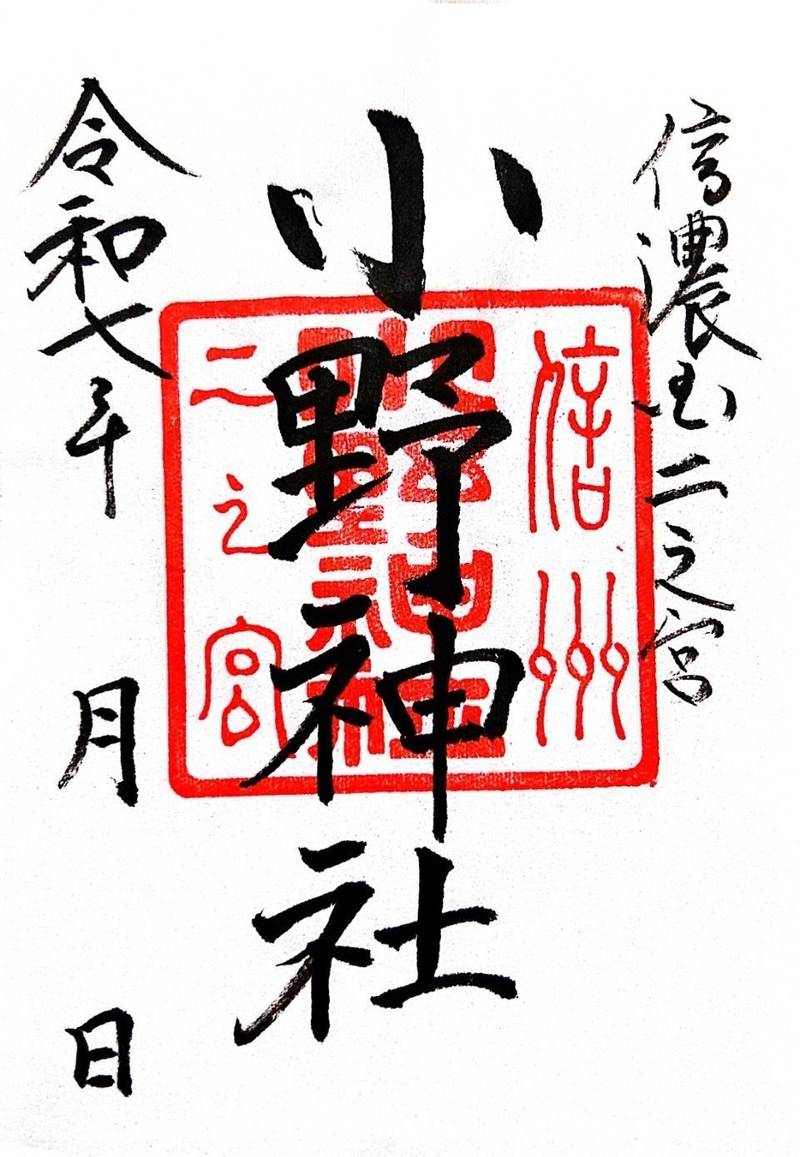 信濃国二之宮
小野神社
令和七年 月 日
信州
二之宮